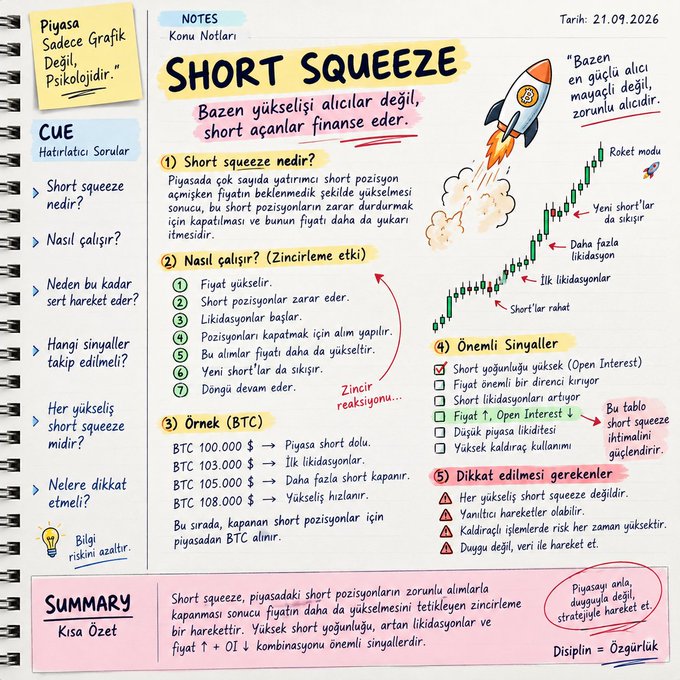 Piyasa
Sadece Grafik
Değil,
Psikolojidir."
NOTES
Konu Notları
Tarih: 21.09.2026
SHORT SQUEEZE
Bazen yükselişi alıcılar değil,
short açanlar finanse eder.
"Bazen
en güçlü alıcı
mayaçli değil,
zorunlu alıcıdir.
CUE
Hatırlatıcı Sorular
Short squeeze
nedir?
Nasıl çalışır?
Neden bu kadar
sert hareket eder?
Hangi sinyaller
takip edilmeli?
Her yükseliş
short squeeze
midir?
Nelere dikkat
etmeli?
Bilgi
riskini azaltır.
1) Short squeeze nedir?
Piyasada çok sayıda yatırımcı short pozisyon
açmişken fiyatın beklenmedik şekilde yükselmesi
sonucu, bu short pozisyonların zarar durdurmak
için kapatılması ve bunun fiyatı daha da yukarı
itmesidir.
2) Nasıl çalışır? (Zincirleme etki)
1 Fiyat yükselir.
2 Short pozisyonlar zarar eder.
3 Likidasyonlar başlar.
4 Pozisyonları kapatmak için alım yapılır.
5 Bu alımlar fiyatı daha da yükseltir.
6 Yeni short'lar da sıkışır.
7 Döngü devam eder.
Zincir
reaksiyonu...
3) Örnek (BTC)
BTC 100.000 $ → Piyasa short dolu.
BTC 103.000 $ → İlk likidasyonlar.
BTC 105.000 $ → Daha fazla short kapanır.
BTC 108.000 $ → Yükseliş hızlanır.
Bu sırada, kapanan short pozisyonlar için
piyasadan BTC alınır.
Roket modu
Yeni short'lar
da sıkışır
Daha fazla
likidasyon
İlk likidasyonlar
Short'lar rahat
4) Önemli Sinyaller
Short yoğunluğu yüksek (Open Interest)
Fiyat önemli bir direnci kırıyor
Short likidasyonları artıyor
Fiyat ↑, Open Interest ↓
Düşük piyasa likiditesi
Yüksek kaldıraç kullanımı
Bu tablo
short squeeze
ihtimalini
güçlendirir.
5) Dikkat edilmesi gerekenler
Her yükseliş short squeeze değildir.
Yanıltıcı hareketler olabilir.
Kaldıraçlı işlemlerde risk her zaman yüksektir.
Duygu değil, veri ile hareket et.
SUMMARY
Kısa Özet
Short squeeze, piyasadaki short pozisyonların zorunlu alımlarla
kapanması sonucu fiyatın daha da yükselmesini tetikleyen zincirleme
bir harekettir. Yüksek short yoğunluğu, artan likidasyonlar ve
fiyat ↑ + OI ↓ kombinasyonu önemli sinyallerdir.
Piyasayı anla,
duyguyla değil,
stratejiyle hareket et.
Disiplin = Özgürlük